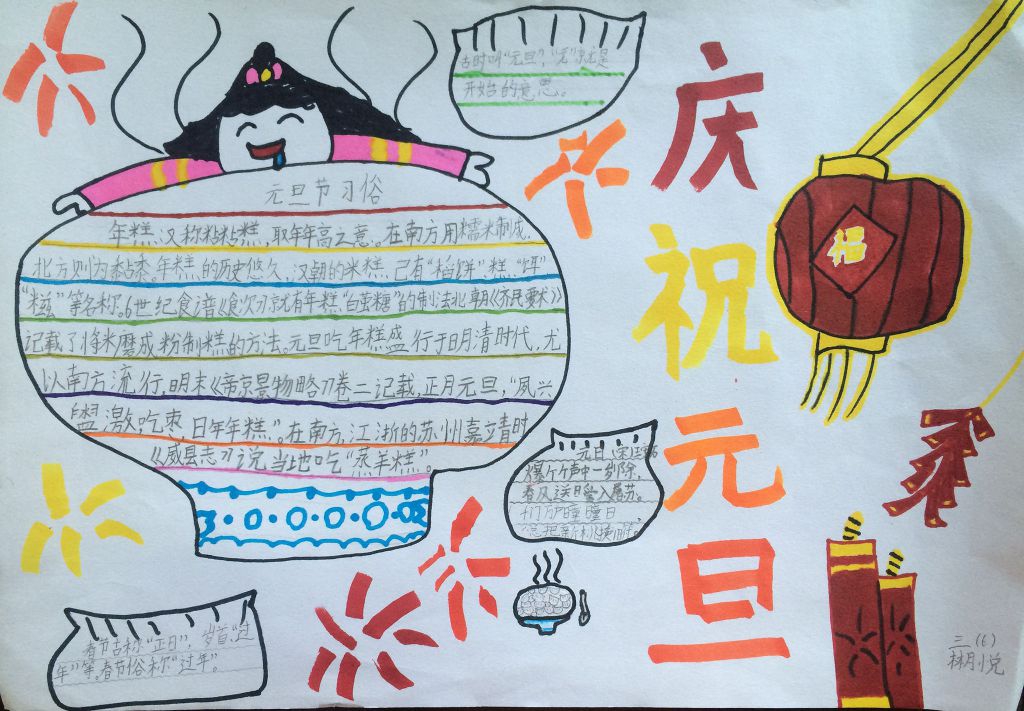 古时叫"元旦","元"就是
开始的意思。
庆祝元旦
福
元旦节习俗
年糕,又称粘粘糕,取年年高之意。在南方用糯米制成,
北方则为黏黍。年糕的历史悠久,汉朝的米糕,已有"稻饼"糕"饵"
"糍"等名称。6世纪食谱《食次》就有年糕"白茧糖"的制法北朝《齐民要术》
记载了将米磨成粉制糕的方法。元旦吃年糕盛行于明清时代,尤
以南方流行,明末《帝京景物略》卷二记载,正月元旦,"夙兴
盥漱吃枣,日年年糕"。在南方,江浙的苏州嘉立青时
《威县志》说当地吃"蒸羊糕"。
元日
爆个竹声中一岁除,
春风送日暖入屠苏。
瞳瞳日
总把新
春节古称"正日",岁首,"过
年"等。春节俗称"过年"。
三(6)
林悦